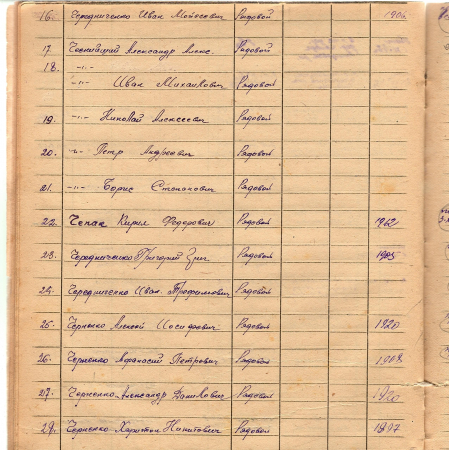 16. Чередниченко Иван Мойсеевич Рядовой 1906
17. Чернявский Александр Алекс. Рядовой
18. -"-
-"- Иван Михайлович Рядовой
19. -"- Николай Алексеевич Рядовой
20. -"- Петр Андреевич Рядовой
21. -"- Борис Степанович Рядовой
22. Чепак Кирил Федорович Рядовой 1912
23. Чередниченко Григорий Рядовой 1905
24. Чередниченко Иван Трофимович Рядовой
25. Черненко Алексей Иосифович Рядовой 1920
26. Черненко Афанасий Петрович Рядовой 1908
27. Черненко Александр Данилович Рядовой 1920
28. Черненко Харитон Никитович Рядовой 1907